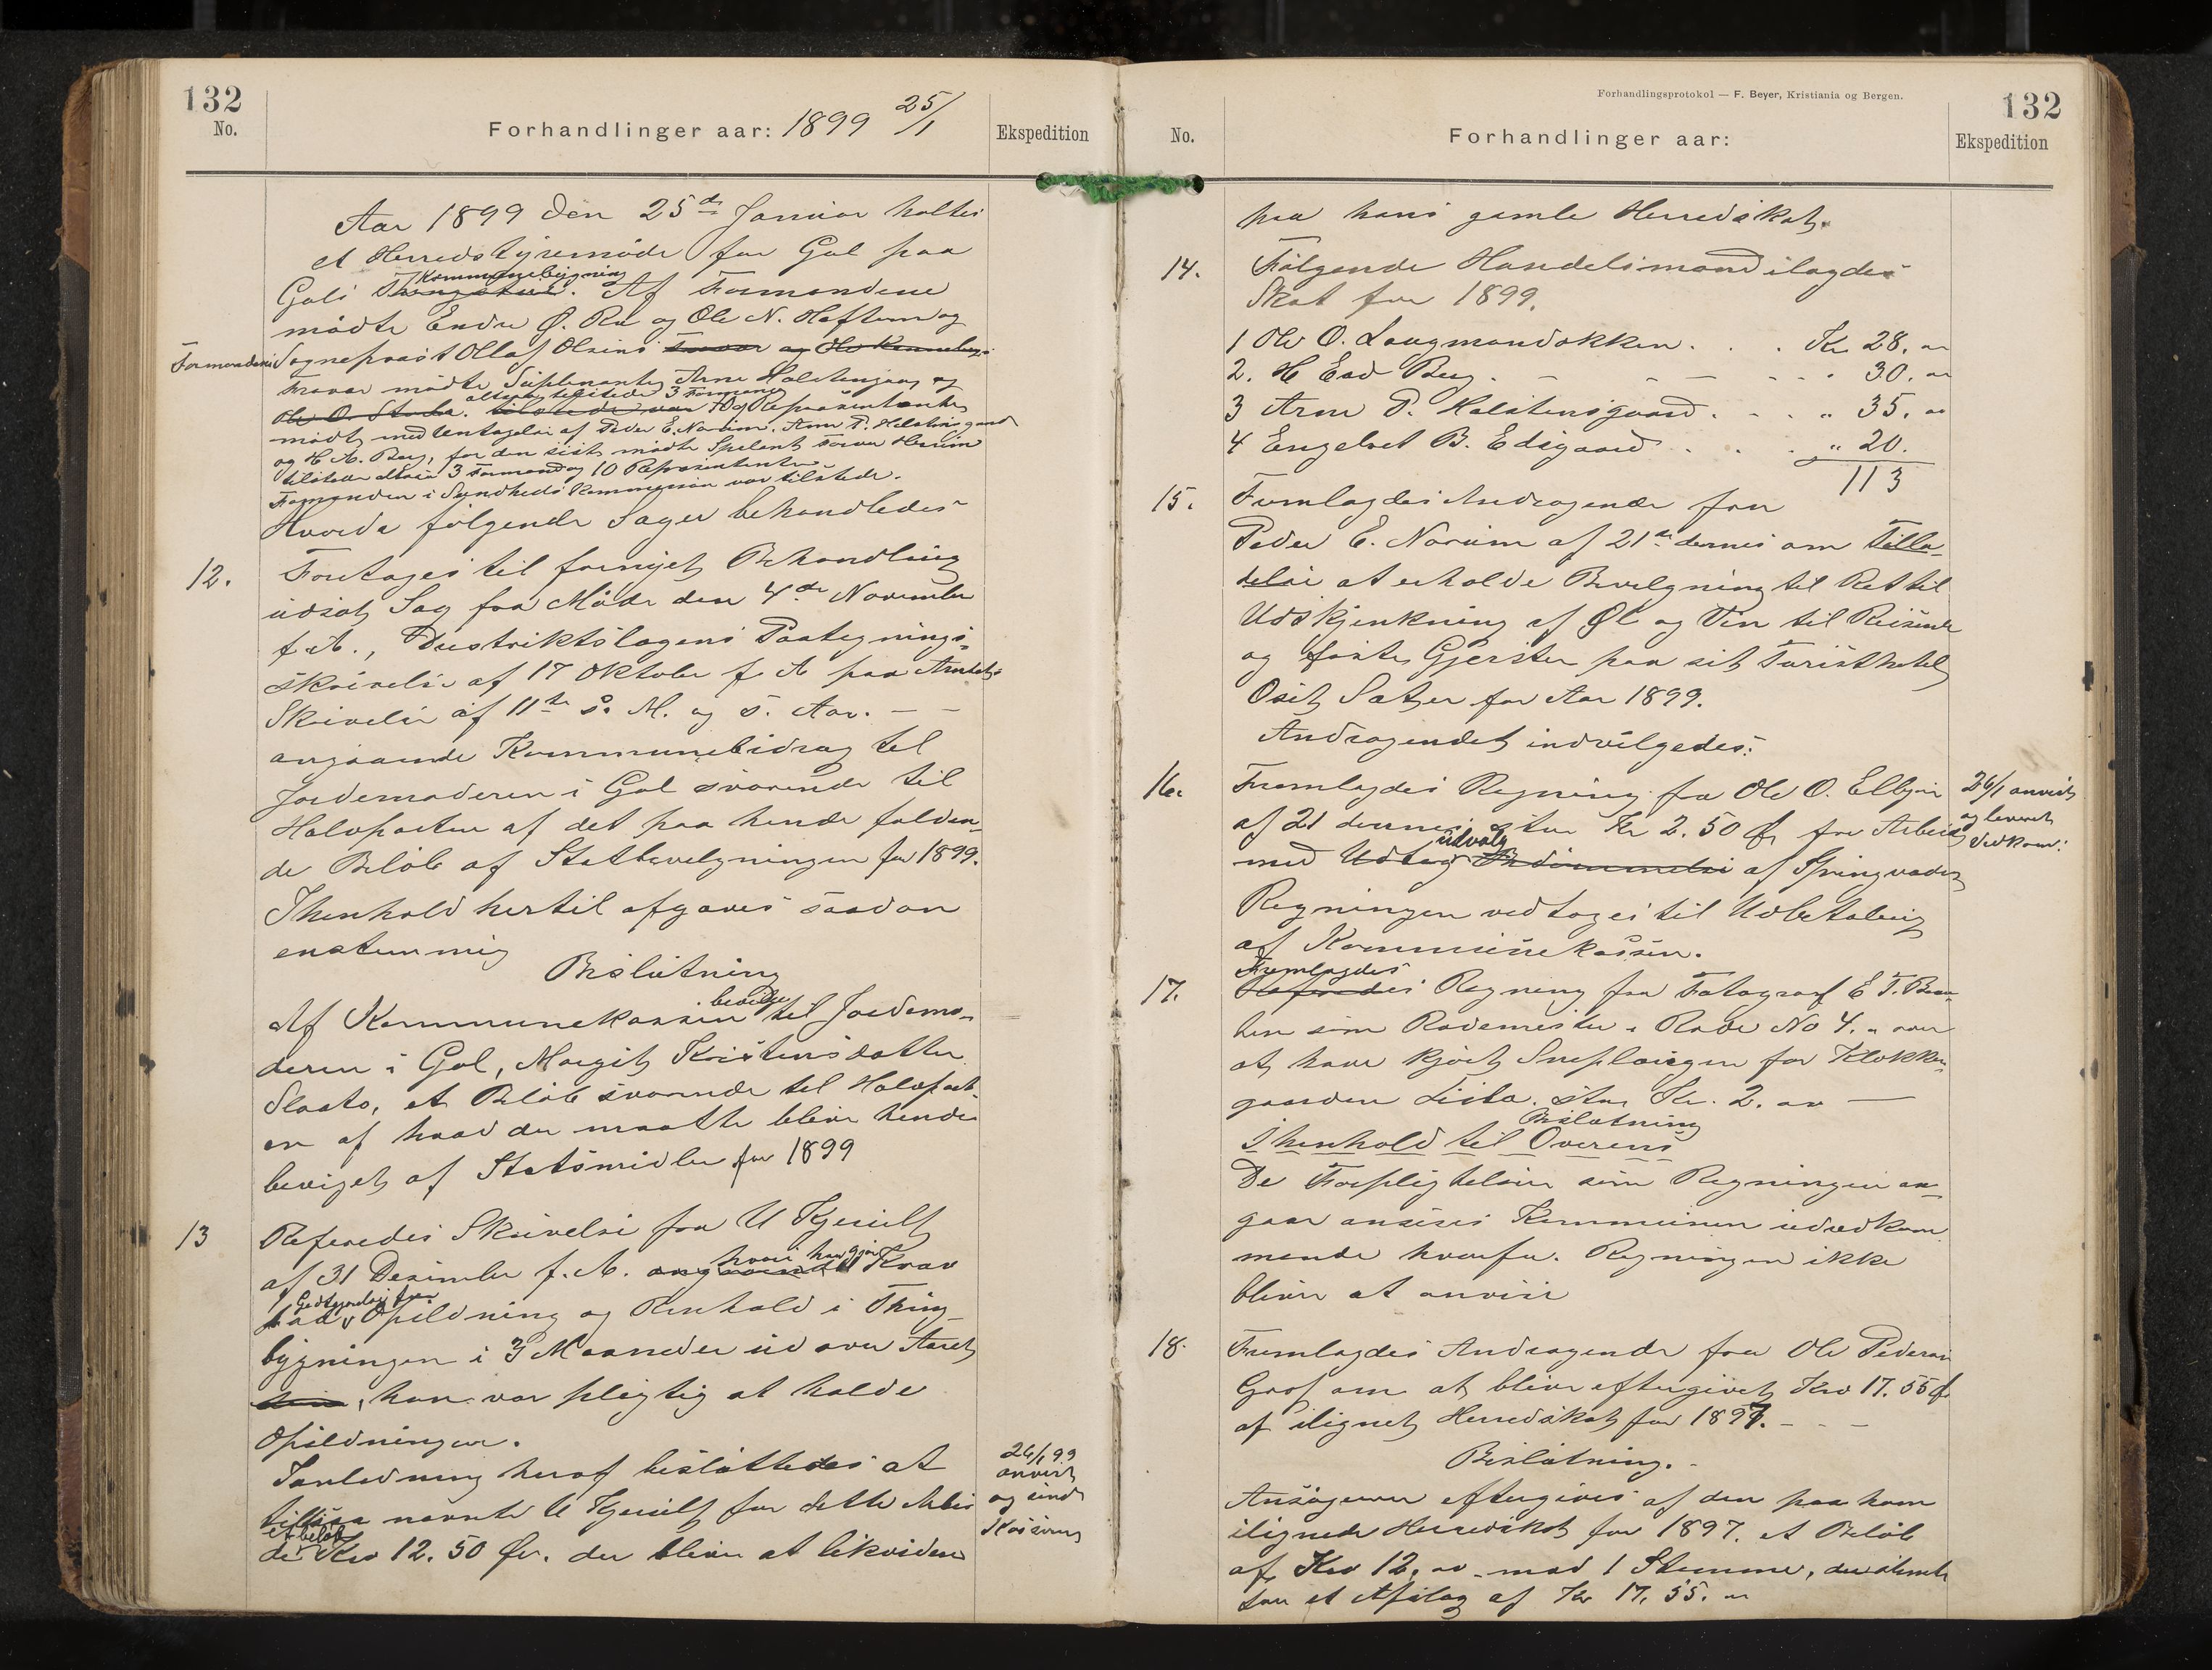 132
No.
Forhandlinger aar: 1899 25/1
Ekspedition
Aar 1899 den 25de Januar holtes
et Herredstyremøde for Gol paa
Gols Kommunebygning. Af Formændene
mødte Endre Ø. Ru og Ole N. Heftum og
Formandens Sogneprest Ollaf Olsens
Fravær mødte Suplenanten Arne Halstensgaard og
altsaa tilstede 3 Formænd
10 Repræsentanter
mødt med Undtagelse af Peder E. Norum. Arne P. Halstensgaard
og H A. Berg, for den sidste mødte Suplent
tilstede altsaa 3 Formænd og 10 Repræsentanter
Formanden i Sundheds Kommissionen var tilstede.
Hvorda følgende Sager behandledes
12.
Foretages til fornyet Behandling
udsat Sag fra Møde den 4de November
f. A., Distriktslægens Paategnings-
skrivelse af 17 Oktober f A paa Amtets
Skrivelse af 11te s. M. og s. Aar. — —
angaaende Kommunebidrag til
Jordemoderen i Gol svarende til
Halvparten af det paa hende falden-
de Beløb af Statsbevilgningen for 1899.
I henhold hertil afgaves saadan
enstemmig
Beslutning
Af Kommunekassen bevilges til Jordemo-
deren i Gol, Margit Kristensdatter
Slaato, et Beløb svarende til Halvpart-
en af hvad der maatte blive hende
beviget af Statsmidler for 1899
13
Referedes Skrivelse fra U Kjerulf
af 31 Desember f. A. hvori han gjør Krav
paa Godtgjørelse for Opildning og Renhold i Thing-
bygningen i 3 Maaneder ud over Aaret
, han var pligtig at holde
Opildningen.
I anledning heraf besluttedes at
tillægge nævnte U Kjerulf for dette Arbei
de et beløb Kro 12.50 Ør. der blive at likvidere
26/1 99
anvist
og sendt
Kasserer
Forhandlingsprotokol — F. Beyer, Kristiania og Bergen.
132
No.
Forhandlinger aar:
Ekspedition
paa hans gamle Herredskat.
14.
Følgende Handelsmænd ilagdes
Skat for 1899.
1 Ole O. Langmandokken . . . Kr 28. "
2. H Ead Berg . - - - - - " 30. "
3 Arne P. Halstensgaard . - . " 35. "
4 Engebret B. Edsgaard . . . " 20.
113
15.
Fremlagdes Andragende fra
Peder E. Norum af 21de dennes om Tilla-
delse at erholde Bevilgning til Ret til
Udskjenkning af Øl og Vin til Reisende
og faste Gjester paa sit Turisthotel
Oset Sæter for Aar 1899.
Andragendet indvilgedes.
16.
Fremlagdes Regning fra Ole O. Elbjør
af 21 dennes stor Kr 2.50 Ør for Arbeide
med udvalg af Springvadet
Regningen vedtoges til Udbetaling
af Kommunekassen.
26/1 anvist
og leveret
Vedkom:
17.
Fremlagdes Regning fra Fotograf E T. Bra-
ten som Rodemester i Rode No 4. " over
at have kjørt Sneplougen for Klokker-
gaarden Lisla. stor Kr. 2. "" —
Beslutning
I henhold til Overens
De Forpligtelser som Regningen an-
gaar ansees Kommunen uvedkom
mende hvorfor Regningen ikke
bliver at anvise
18.
Fremlagdes Andragende fra Ole Pedersen
Grøf om at blive eftergivet Kro 17.55 Ør
af ilignet Herredskat for 1897. - - -
Beslutning. -
Ansøgeren eftergives af den paa ham
ilignede Herredskat for 1897. et Beløb
af Kro 12, "" mod 1 Stemme, der stemte
for et Afslag af Kr 17.55. "